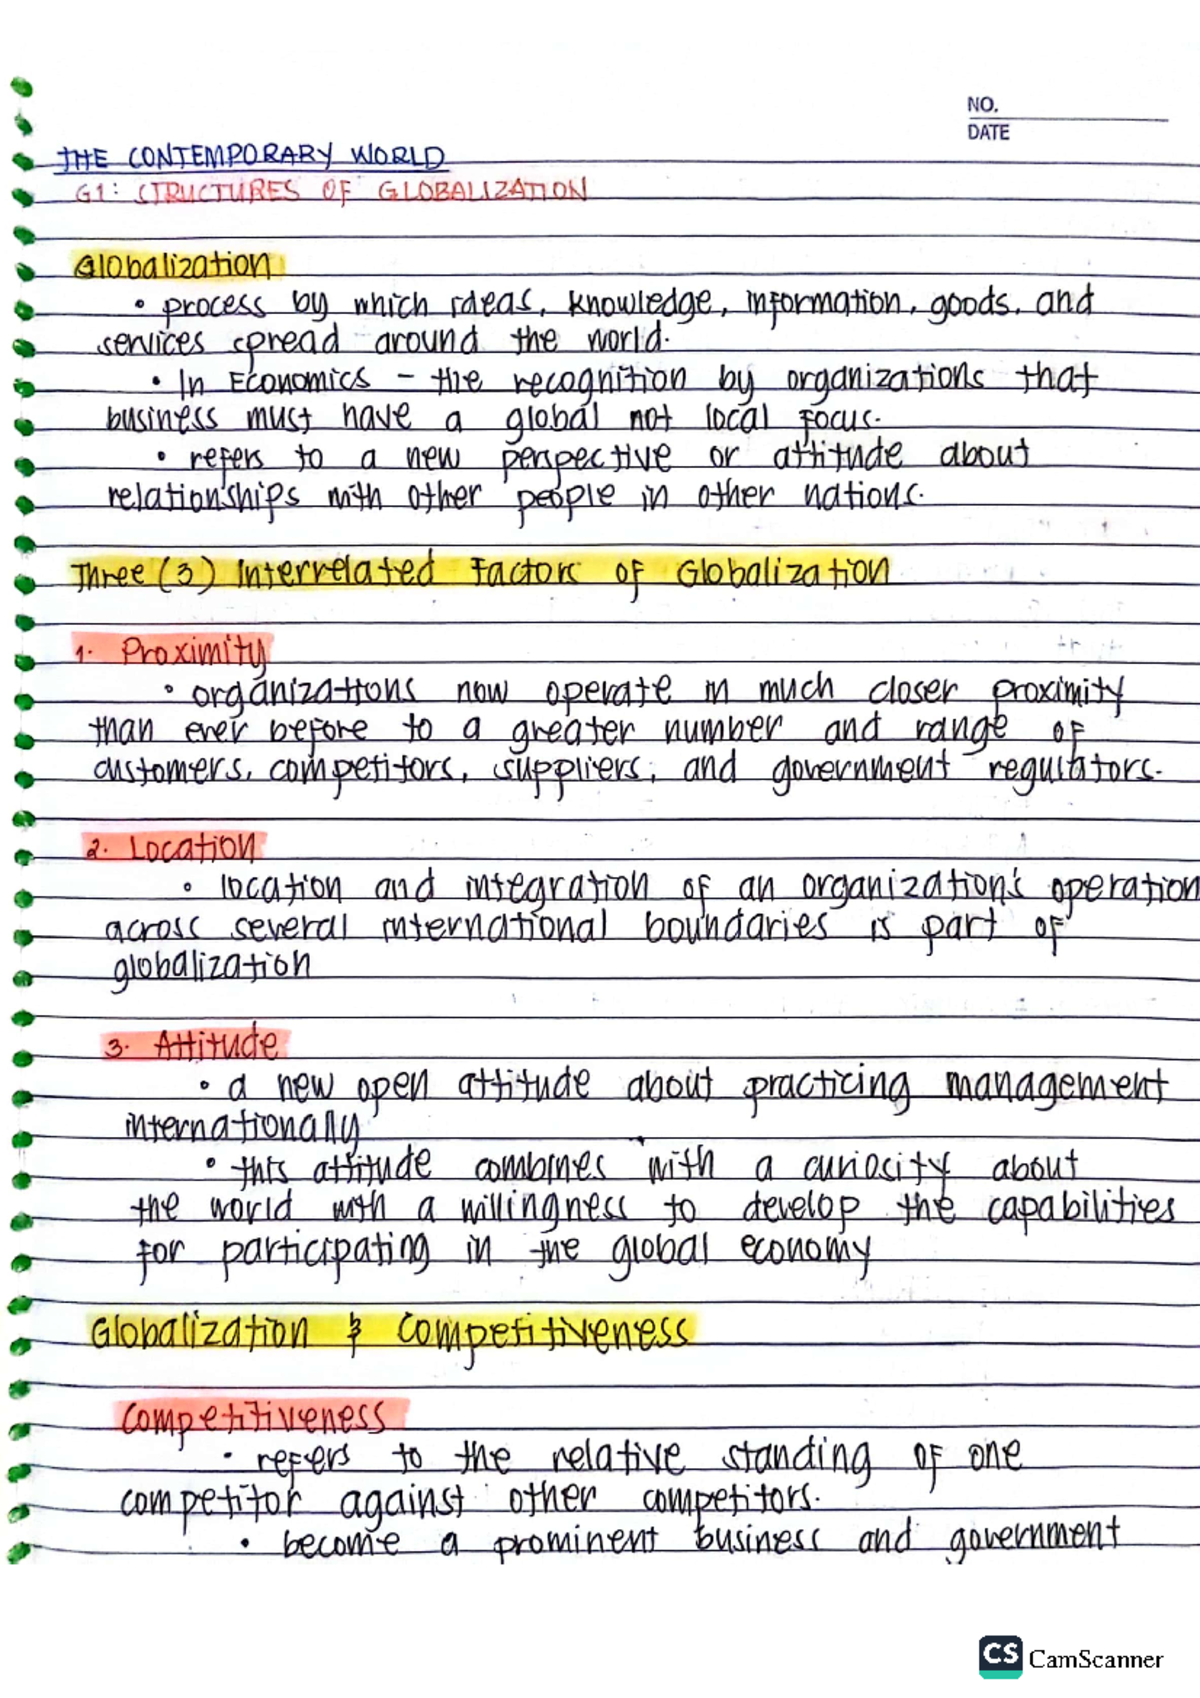 NO.
DATE
THE CONTEMPORARY WORLD
G1: STRUCTURES OF GLOBALIZATION
Globalization
• process by which ideas, knowledge, information, goods, and
services spread around the world.
• In Economics – the recognition by organizations that
business must have a global not local focus.
• refers to a new perspective or attitude about
relationships with other people in other nations.
Three (3) Interrelated Factors of Globalization
1. Proximity
• organizations now operate in much closer proximity
than ever before to a greater number and range of
customers, competitors, suppliers, and government regulators.
2. Location
• location and integration of an organization's operation
across several international boundaries is part of
globalization
3. Attitude
• a new open attitude about practicing management
internationally
• this attitude combines with a curiosity about
the world with a willingness to develop the capabilities
for participating in the global economy
Globalization & Competitiveness
Competitiveness
• refers to the relative standing of one
competitor against other competitors.
• become a prominent business and government
CS CamScanner